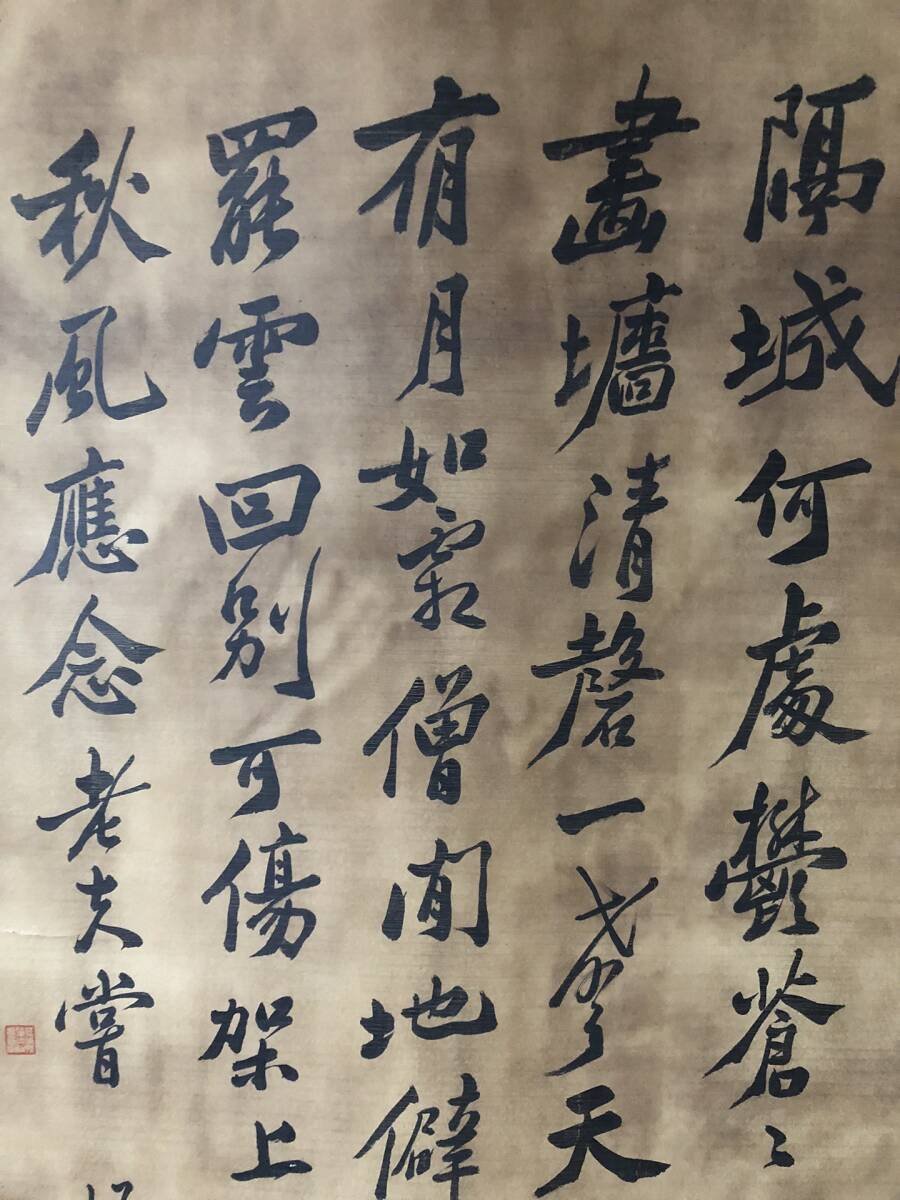 隔城何處鬱蒼〻
畫墻清磬一天
有月如霜僧閒地僻
罷雲回別可傷架上
秋風應念老夫嘗